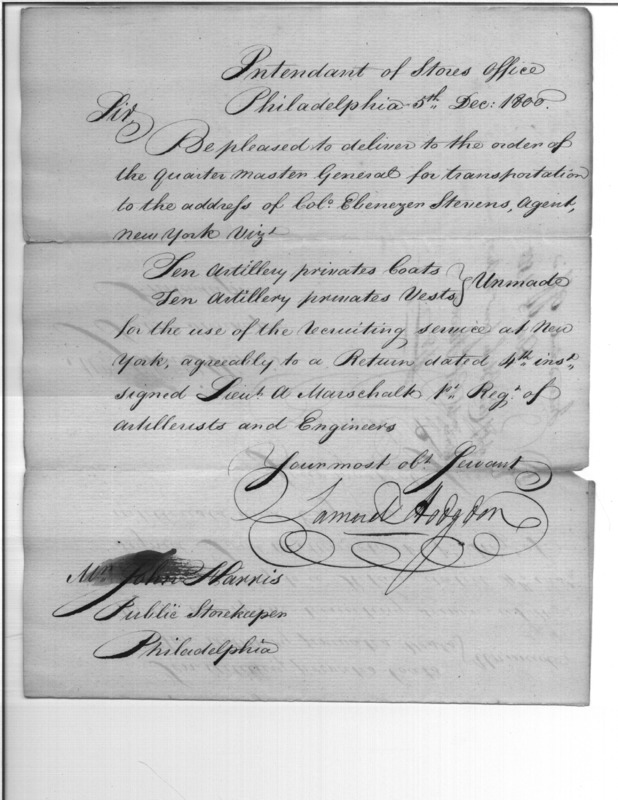 Intendant of Stores Office
Philadelphia 5th Dec: 1800.
Sir,
Be pleased to deliver to the order of
the Quarter Master General for transportation
to the addreſs of Colo. Ebenezer Stevens, Agent,
New York Vizt
Ten Artillery privates Coats } Unmade
Ten Artillery privates Vests
for the use of the recruiting service at New
York, agreeably to a Return dated 4th inst,
signed Lieut. A Marschalk 1st Regt of
Artillerists and Engineers
Your most obt Servant
Samuel Hodgdon
Mr John Harris
Public Storekeeper
Philadelphia